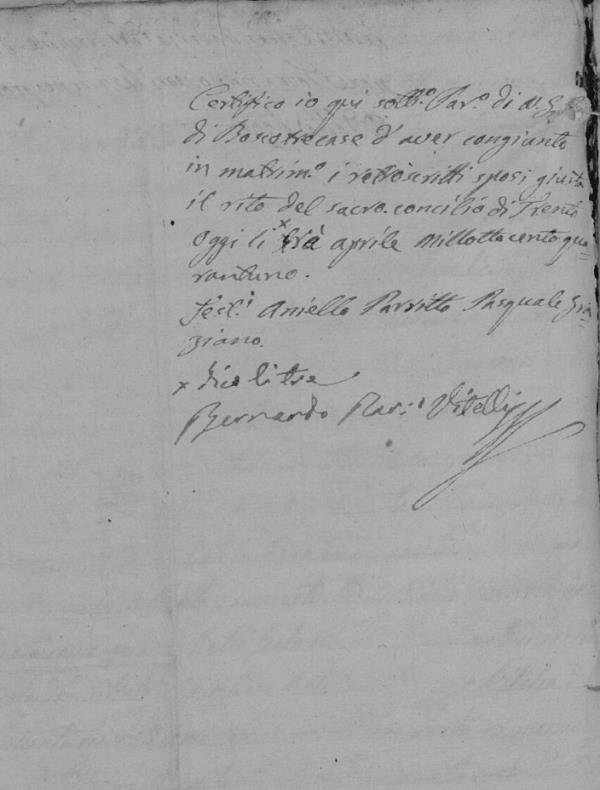 Certifico io qui sott.o Par.o di
di Boscotrecase d'aver congiunto
in matrim.o i retroscritti sposi giusta
il rito del sacro concilio di Trento
Oggi li x trà aprile Millottocento qua=
rantuno.
Test.i Aniello Pasquale
ziano.
x dico li tre
Bernardo Par.o Vitelli